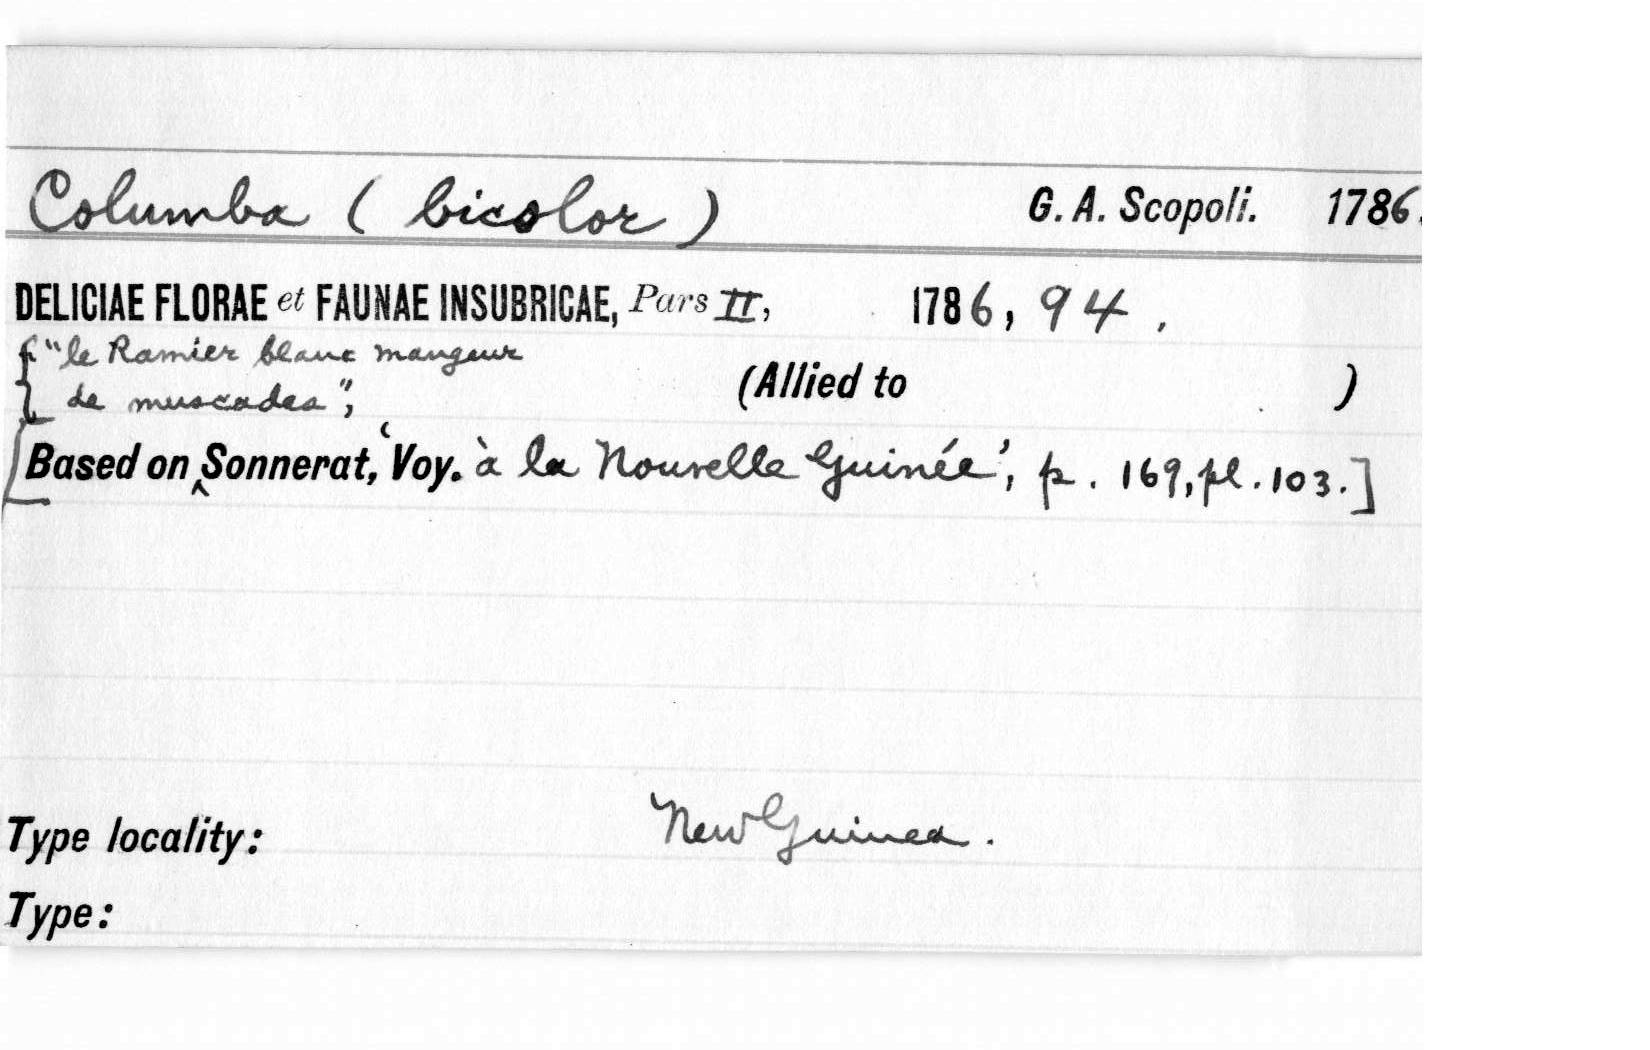 Columba ( bicolor ) G. A. Scopoli. 1786.
DELICIAE FLORAE et FAUNAE INSUBRICAE, Pars II, 1786, 94 .
"le Ramier blanc mangeur
de muscades",
(Allied to )
[Based on Sonnerat, 'Voy. à la Nouvelle Guinée', p. 169, pl. 103.]
Type locality: New Guinea .
Type: